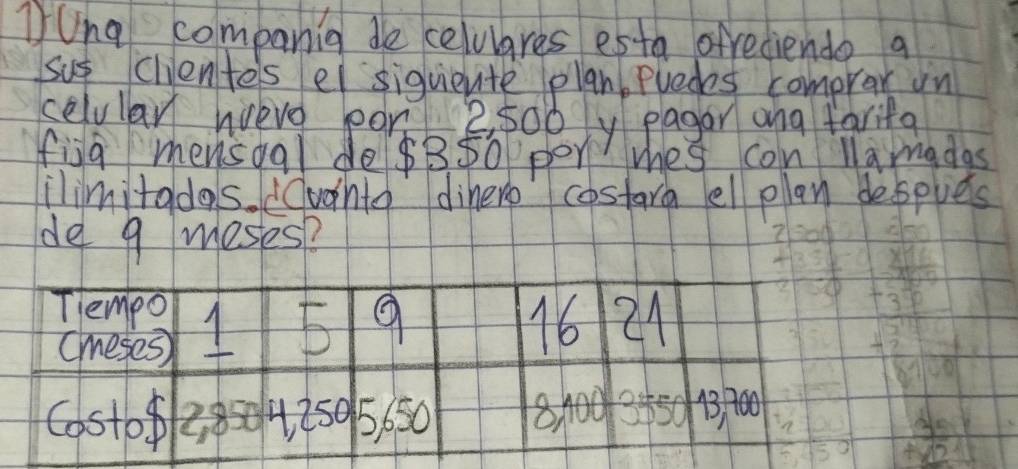 1) Una companía de celulares esta ofreciendo a
sus clientes el siguiente plan. Puedes comprar un
celular nuevo por 2,500 y pagar una tarifa
fija mensual de $350 por mes con llamadas
ilimitadas. ¿Cuánto dinero costara el plan después
de 9 meses?
Tiempo (meses) 1 5 9 16 21
Costo $ 2,850 4,250 5,650 8,100 3550 13,700